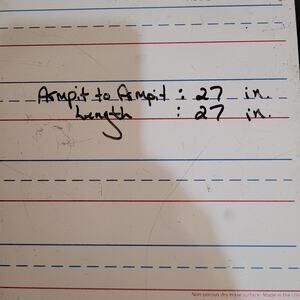 Armpit to Armpit : 27 in.
Length : 27 in.
Non-porous dry erase surface. Made in the USA